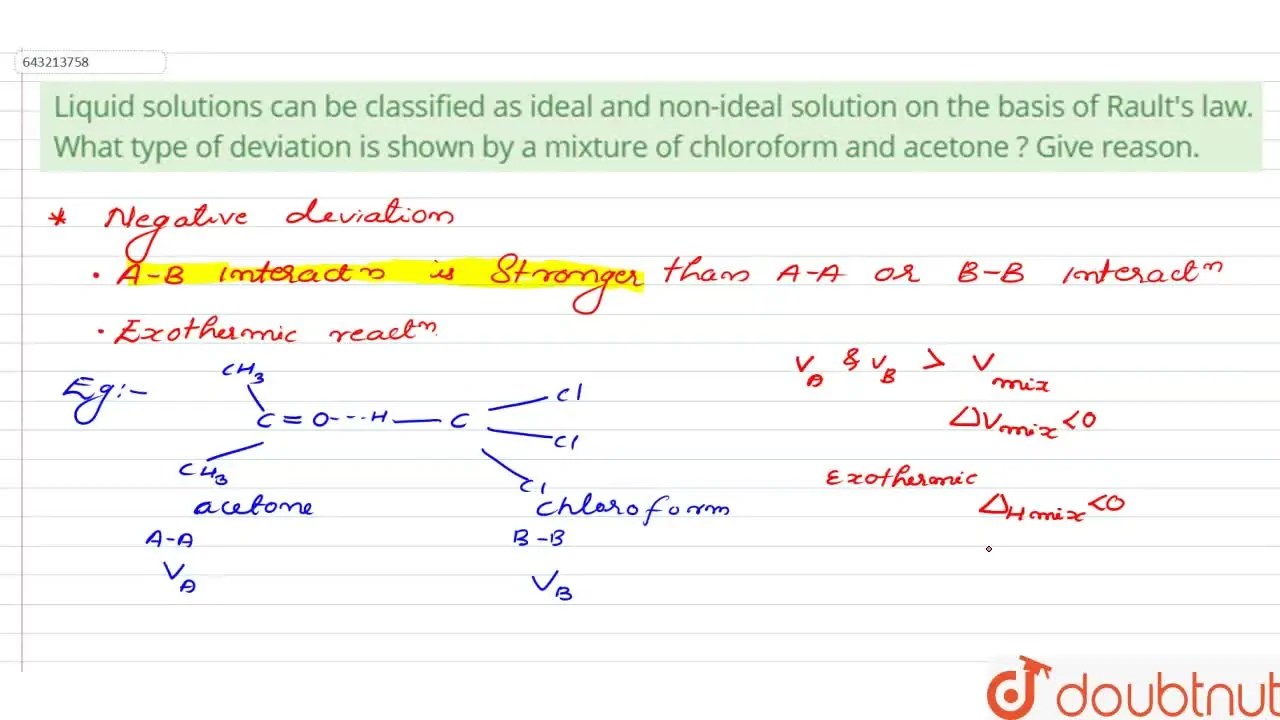 643213758
Liquid solutions can be classified as ideal and non-ideal solution on the basis of Rault's law.
What type of deviation is shown by a mixture of chloroform and acetone ? Give reason.
* Negative deviation
• A-B interactⁿ is Stronger than A-A or B-B interactⁿ
• Exothermic reactⁿ
V_A & V_B > V_mix
ΔV_mix <0
Exothermic
ΔH_mix <0
Eg:-
CH₃
C=O---H—C
Cl
Cl
Cl
CH₃
acetone
chloroform
A-A
B-B
V_A
V_B
doubtnut